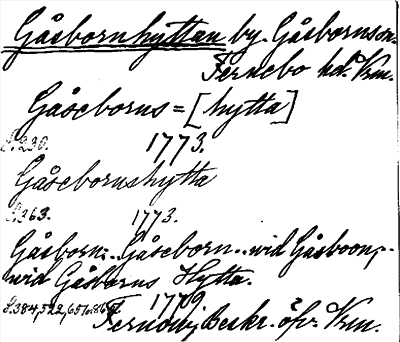 Gåsbornshyttan by. Gåsborns sn.
Fernebo hd. Vrm.
Gåseborns=[hytta]
S. 230. 1773.
Gåsebornshytta
S. 263. 1773.
Gåsborn:.. Gåseborn.. wid Gåsboon,..
wid Gåsborns Hytta.
S. 384, 522, 1779
Fernow, Beskr. öfv. Vrm.